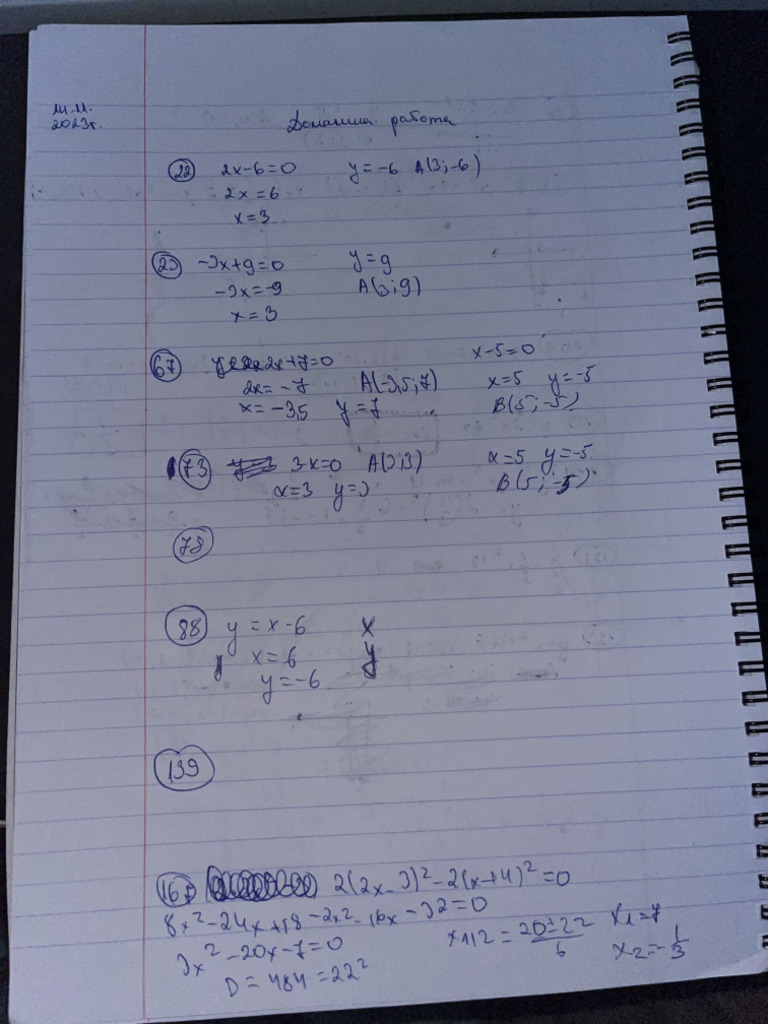 14.11.
2023г.
Домашна работа
22 2x-6=0 y=-6 A(3;-6)
2x=6
x=3
23 -3x+9=0 y=9
-3x=-9 A(3;9)
x=3
67 2x+7=0 x-5=0
2x=-7 A(-3,5;7) x=5 y=-5
x=-3,5 y=7 B(5;-5)
73 3-x=0 A(3;3) x=5 y=-5.
x=3 y=3 B(5;-5)
78
88 y=x-6 x
x=6 y
y=-6
139
167 2(2x-3)²-2(x+4)²=0
8x²-24x+18-2x²-16x-32=0
3x²-20x-7=0 x1,2=20±22/6 x1=7
D=484=22² x2=-1/3